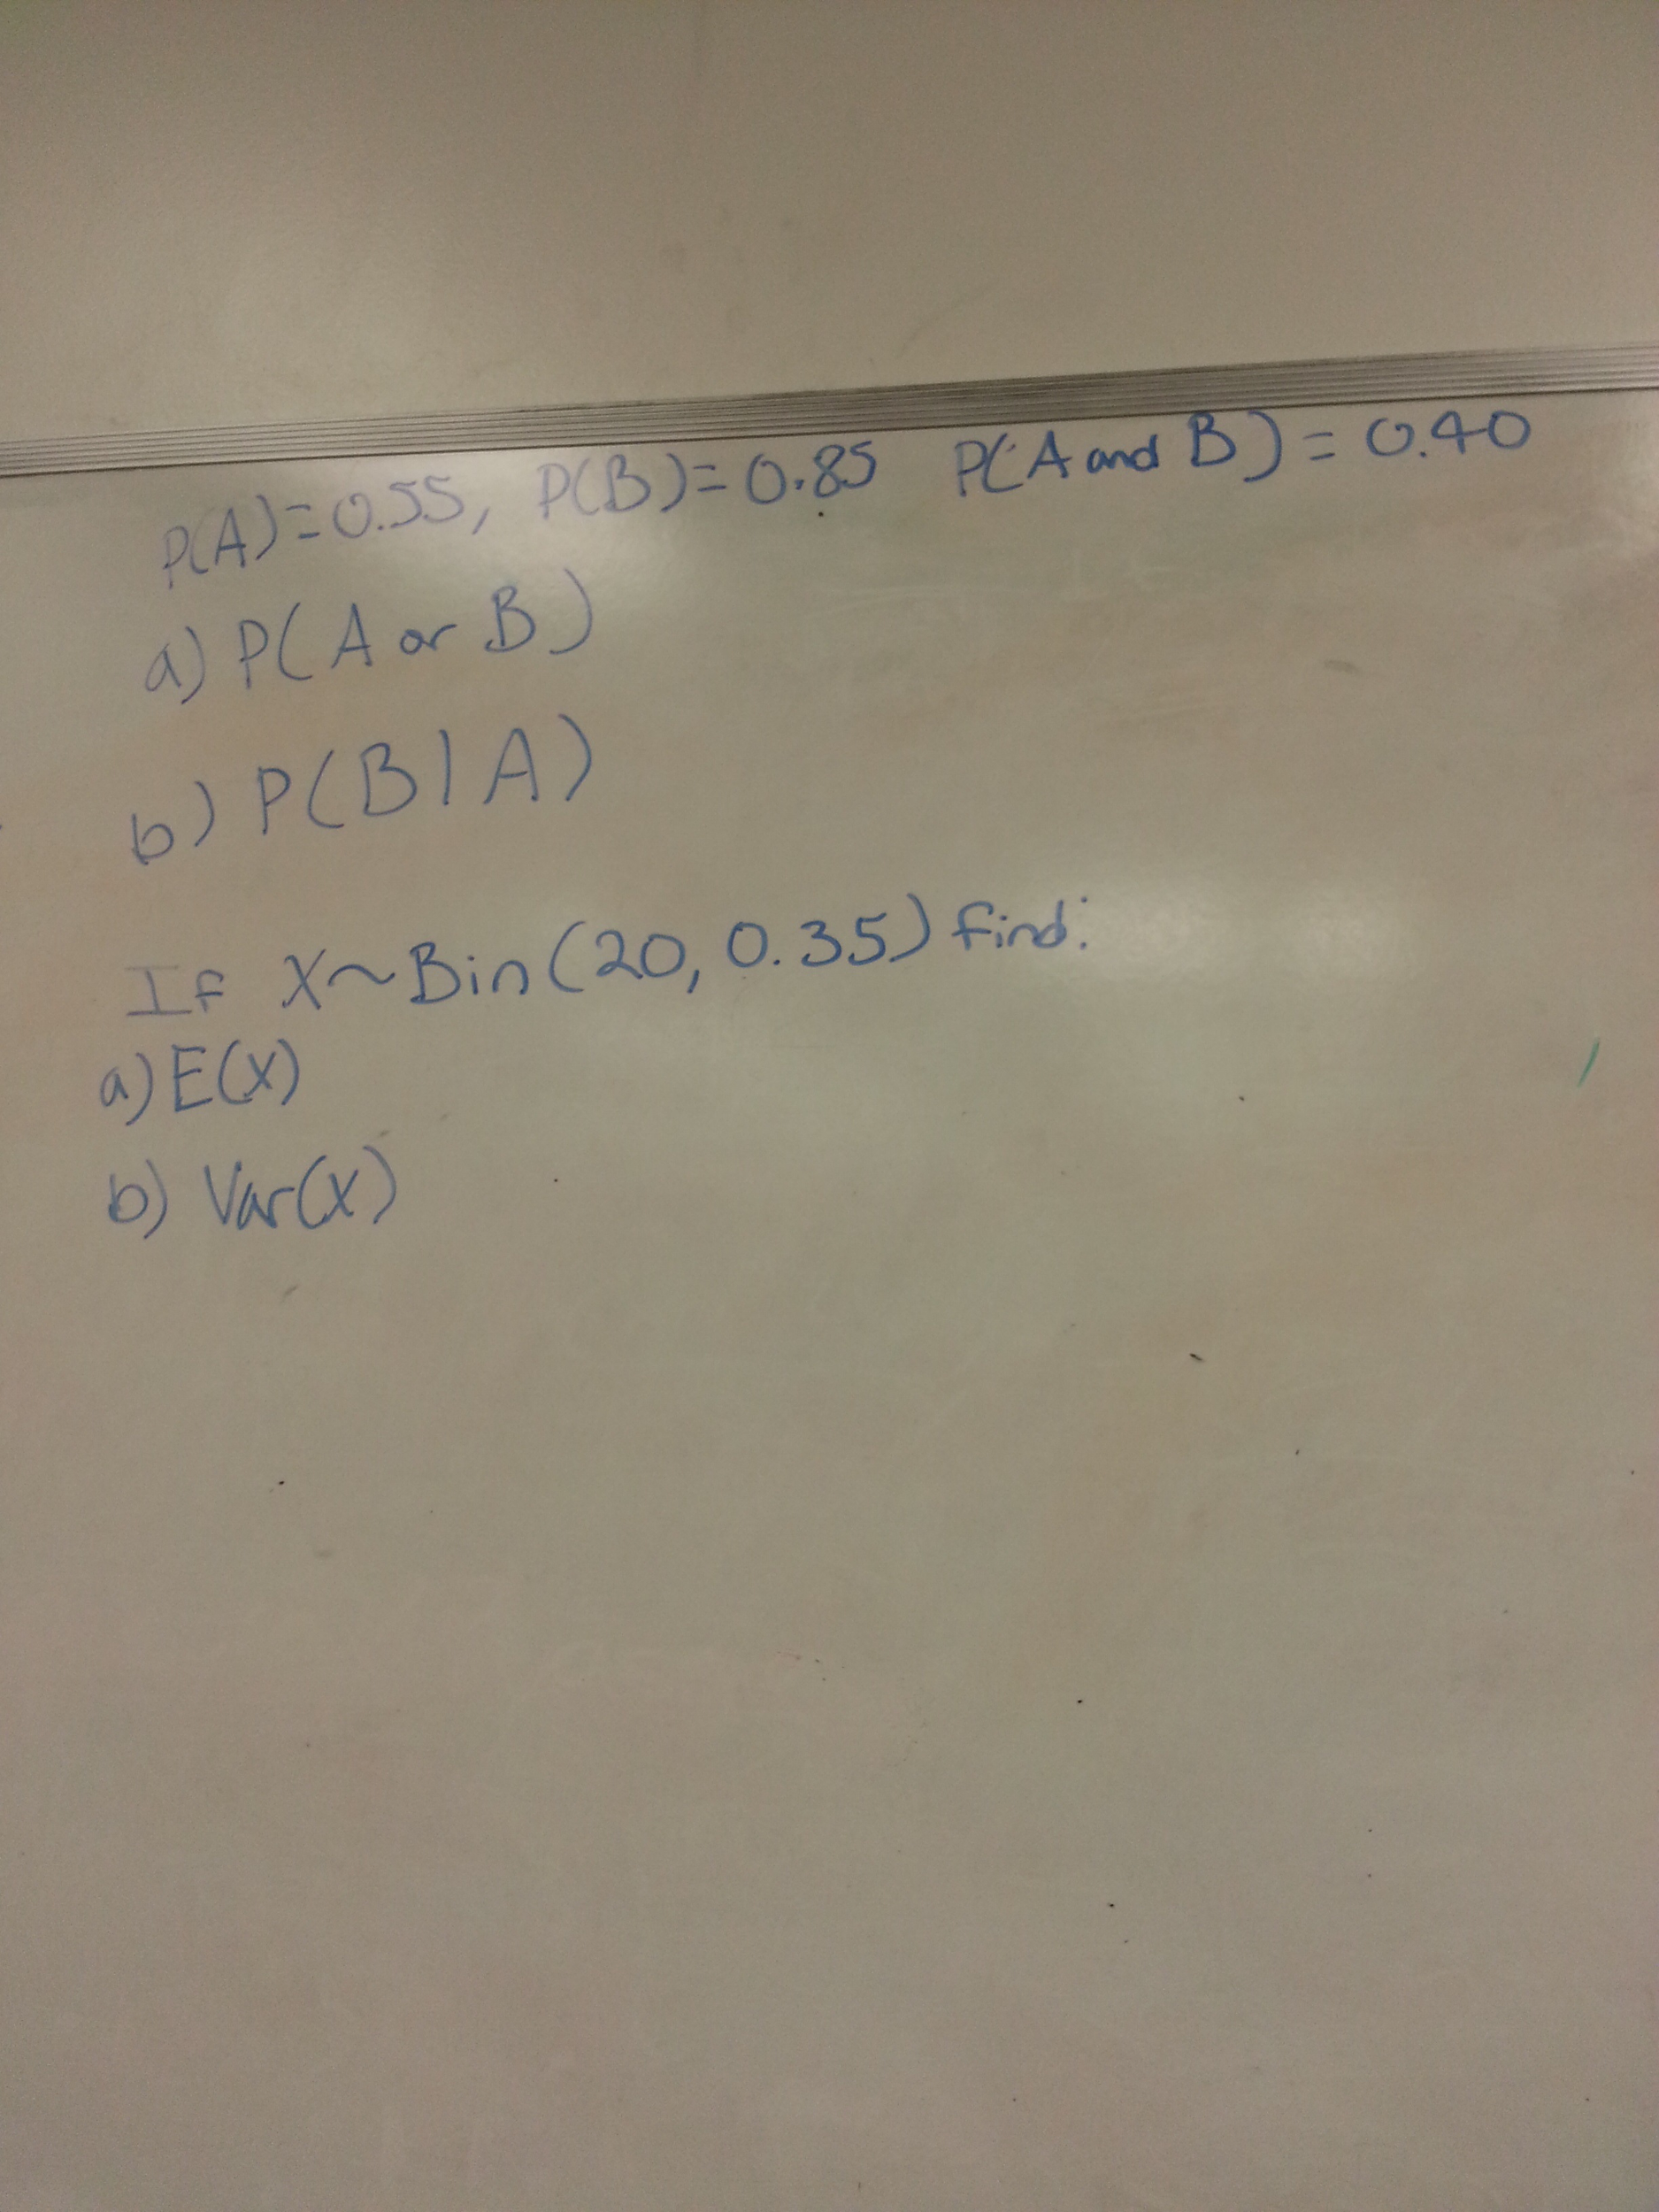 P(A)=0.55, P(B)=0.85 P(A and B)=0.40
a) P(A or B)
b) P(B|A)
If X~Bin(20, 0.35) find:
a) E(X)
b) Var(X)